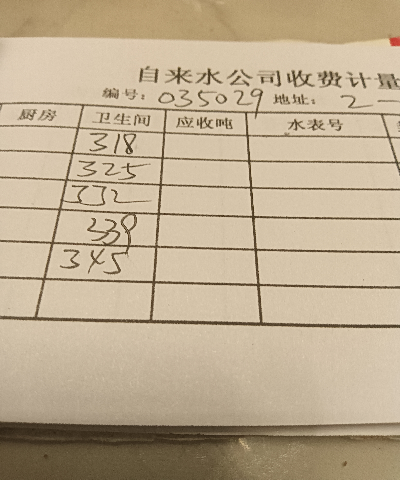 自来水公司收费计量
编号: 035029 地址: 2-
厨房 卫生间 应收吨 水表号
318
325
332
339
345